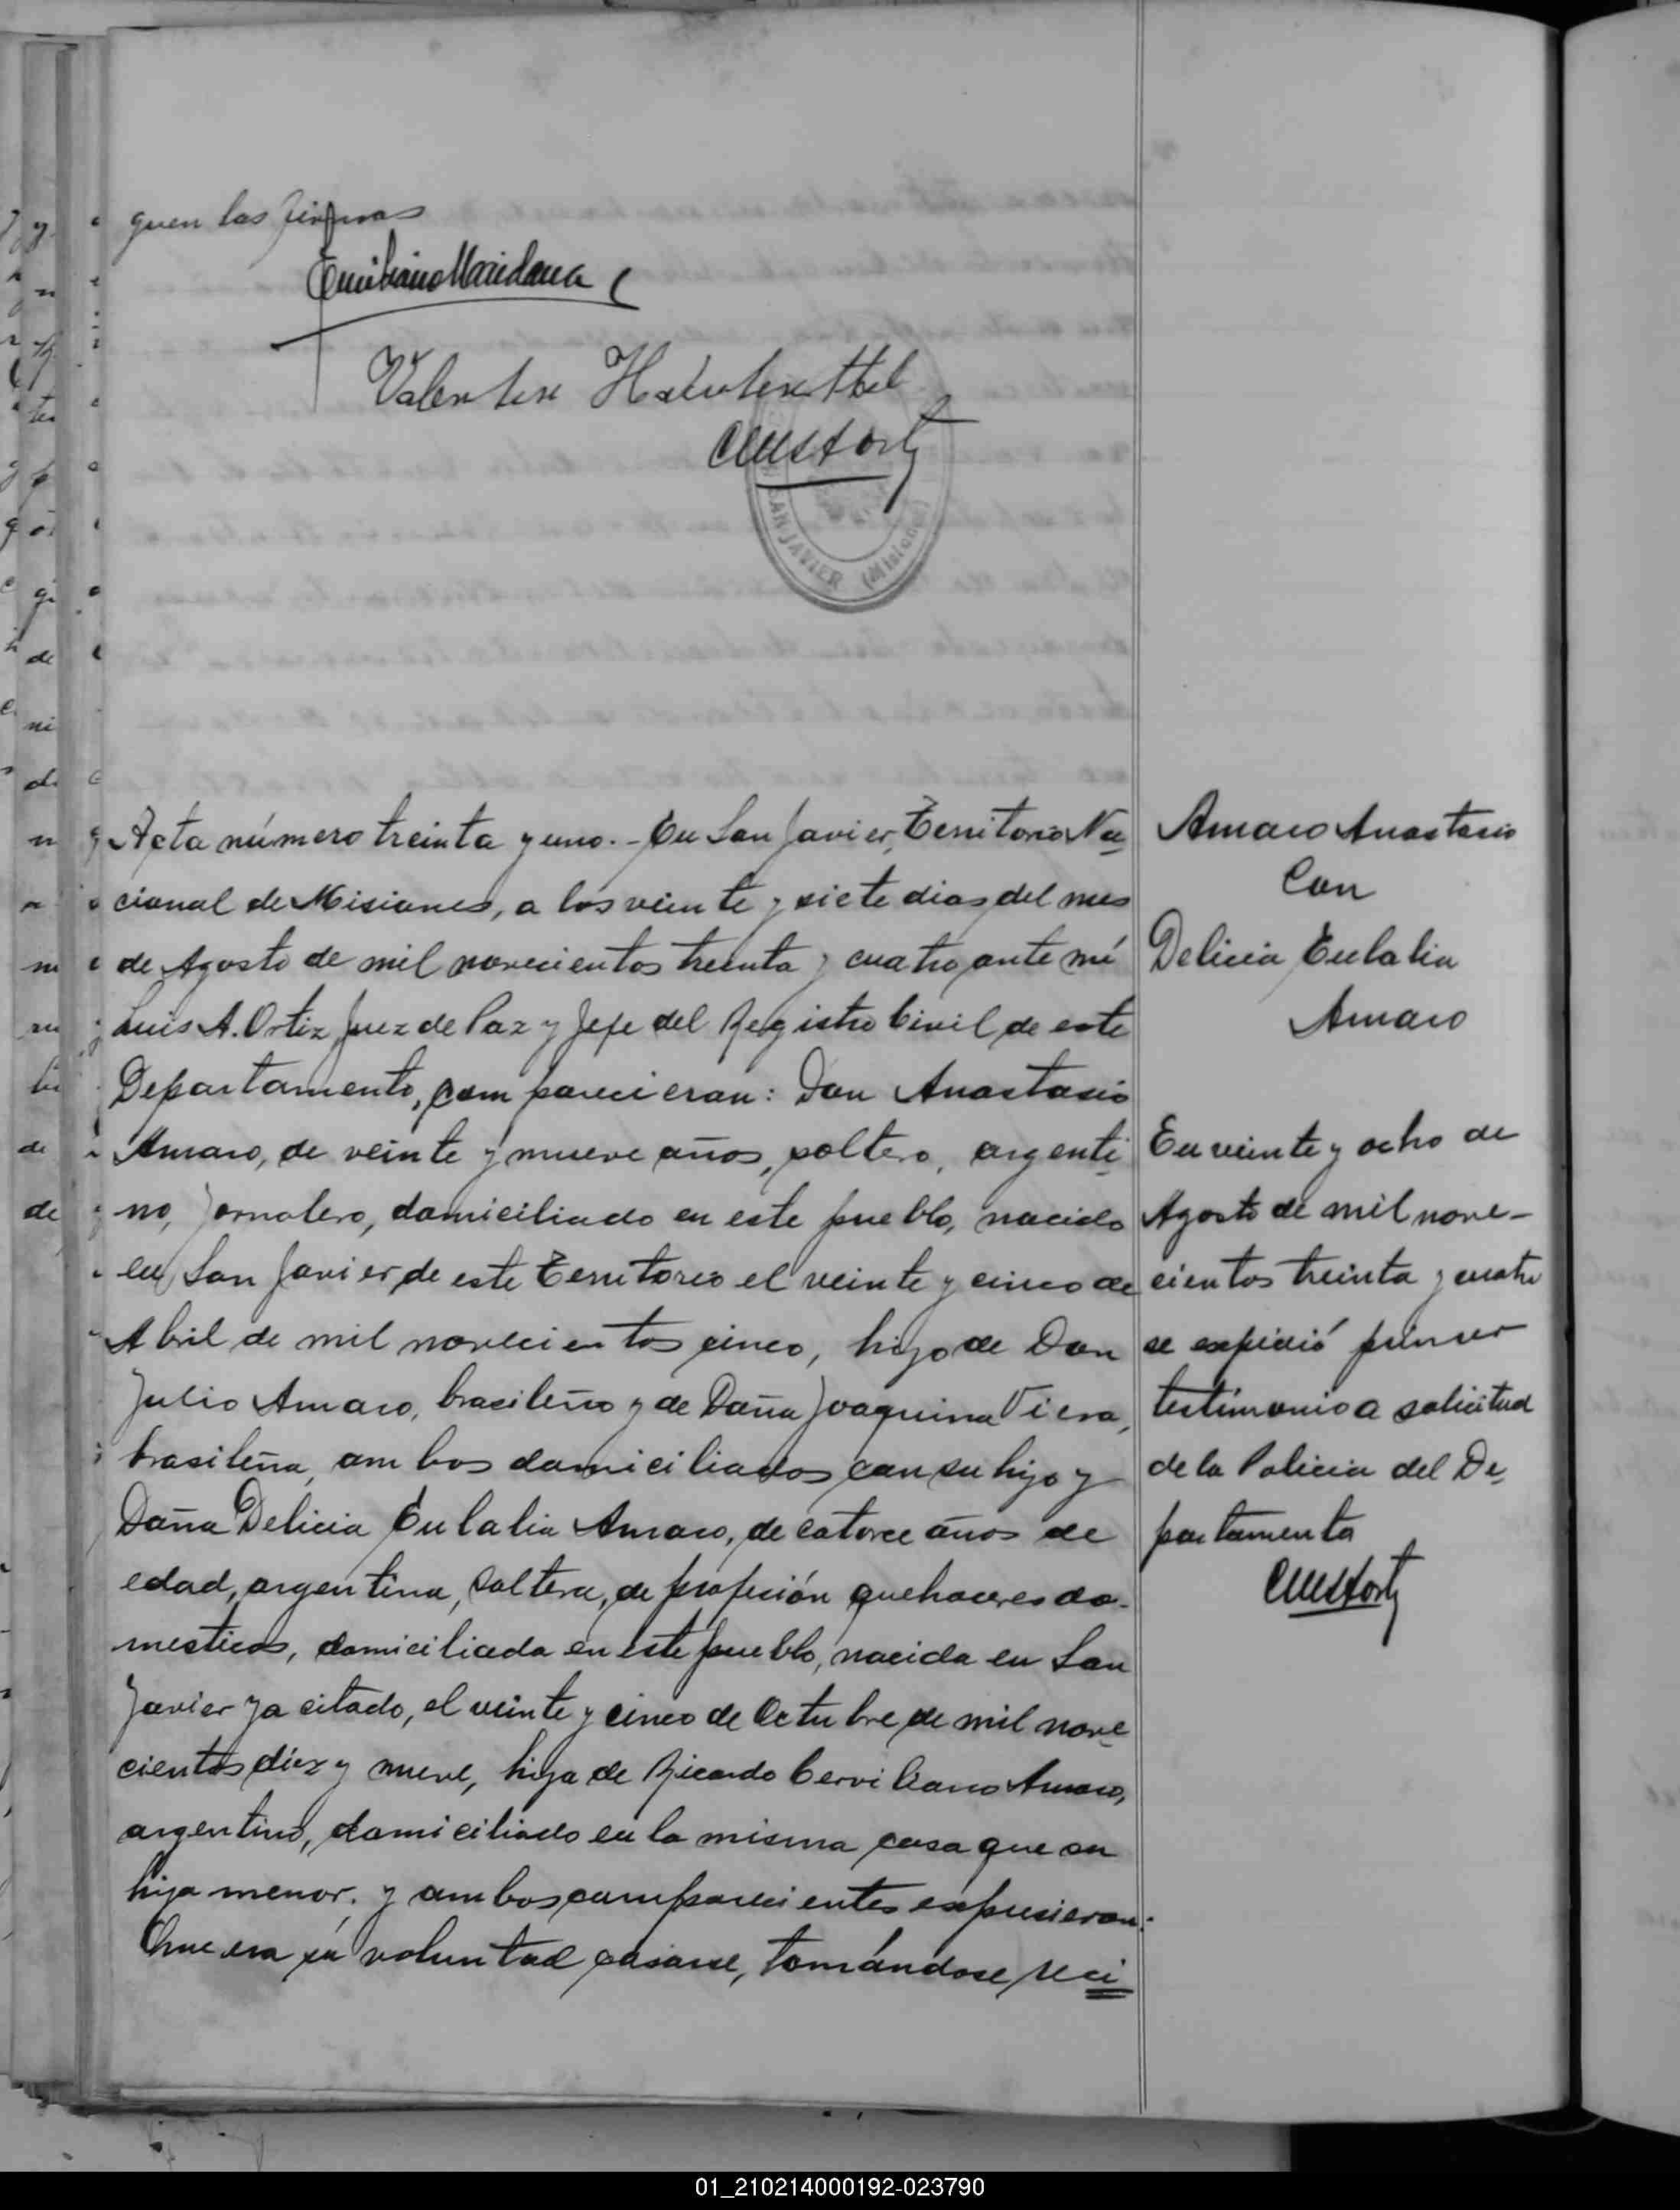 quen las firmas
Valentin
SAN JAVIER (Misiones)
Acta número treinta y uno.- En San Javier, Territorio Na
cional de Misiones, a los veinte y siete dias del mes
de Agosto de mil novecientos treinta y cuatro, ante mí
Luis A. Ortiz, Juez de Paz y Jefe del Registro Civil de este
Departamento, comparecieron: Don Anastasio
Amaro, de veinte y nueve años, soltero, argenti
no, jornalero, domiciliado en este pueblo, nacido
en San Javier, de este Territorio el veinte y cinco de
Abril de mil novecientos cinco, hijo de Don
Julio Amaro, brasileño y de Doña Joaquina Viera,
brasileña, ambos domiciliados con su hijo y
Doña Delicia Eulalia Amaro, de catorce años de
edad, argentina, soltera, de profesión quehaceres do-
mesticos, domiciliada en este pueblo, nacida en San
Javier ya citado, el veinte y cinco de Octubre de mil nove
cientos diez y nueve, hija de Ricardo Cerviliano Amaro,
argentino, domiciliado en la misma casa que su
hija menor. y ambos comparecientes expusieron:
Que era su voluntad casarse, tomándose reci
Amaro Anastasio
Con
Delicia Eulalia
Amaro
En veinte y ocho de
Agosto de mil nove-
cientos treinta y cuatro
se expidió primer
testimonio a solicitud
de la Policia del De
partamento
01_210214000192-023790